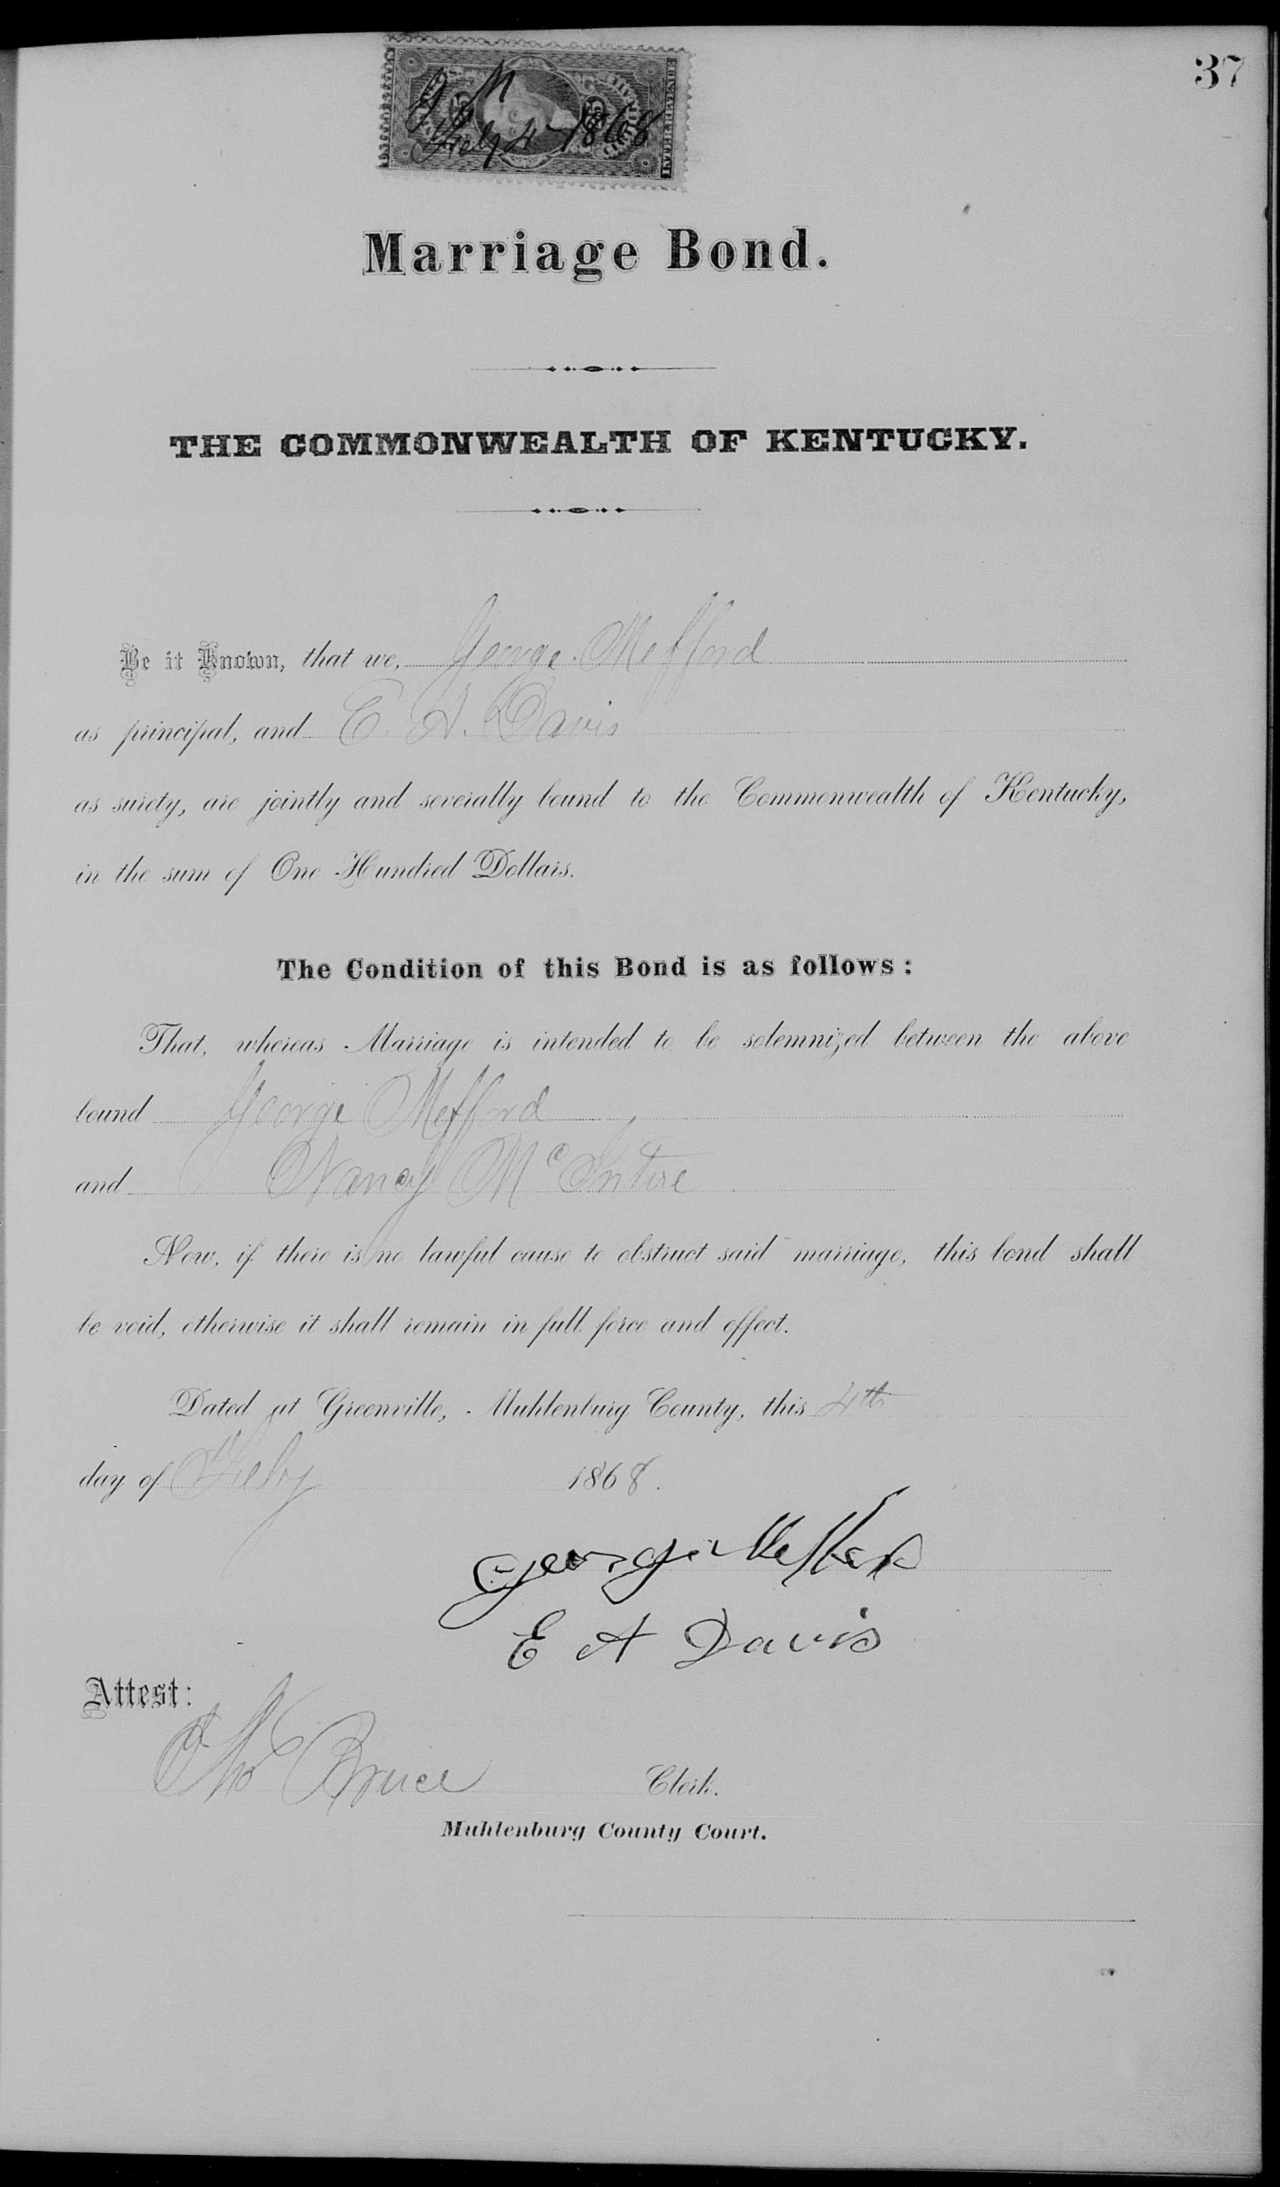 37
G M
Feby 4 1868
INTER. REVENUE
Marriage Bond.
THE COMMONWEALTH OF KENTUCKY.
Be it Known, that we, George Mefford
as principal, and E. A. Davis
as surety, are jointly and severally bound to the Commonwealth of Kentucky,
in the sum of One Hundred Dollars.
The Condition of this Bond is as follows:
That, whereas Marriage is intended to be solemnized between the above
bound George Mefford
and Nancy McIntire
Now, if there is no lawful cause to obstruct said marriage, this bond shall
be void, otherwise it shall remain in full force and effect.
Dated at Greenville, Muhlenburg County, this 4th
day of Feby 1868.
George Mefford
E A Davis
Attest:
Tho Bruce Clerk.
Muhlenburg County Court.